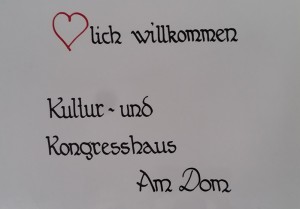 ❤lich willkommen
Kultur - und
Kongresshaus
Am Dom